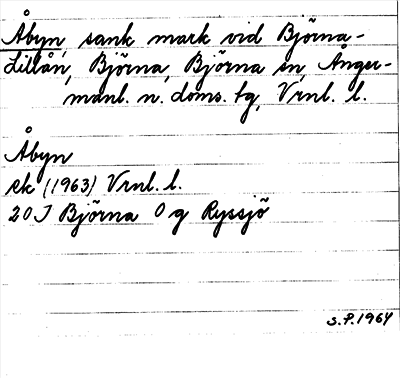 Åbyn, sank mark vid Björna-
Lillån, Björna, Björna sn, Ånger-
manl. n. doms. tg, Vrnl. l.
Åbyn
ek (1963) Vrnl. l.
20 J Björna 0 g Ryssjö
S.P. 1964